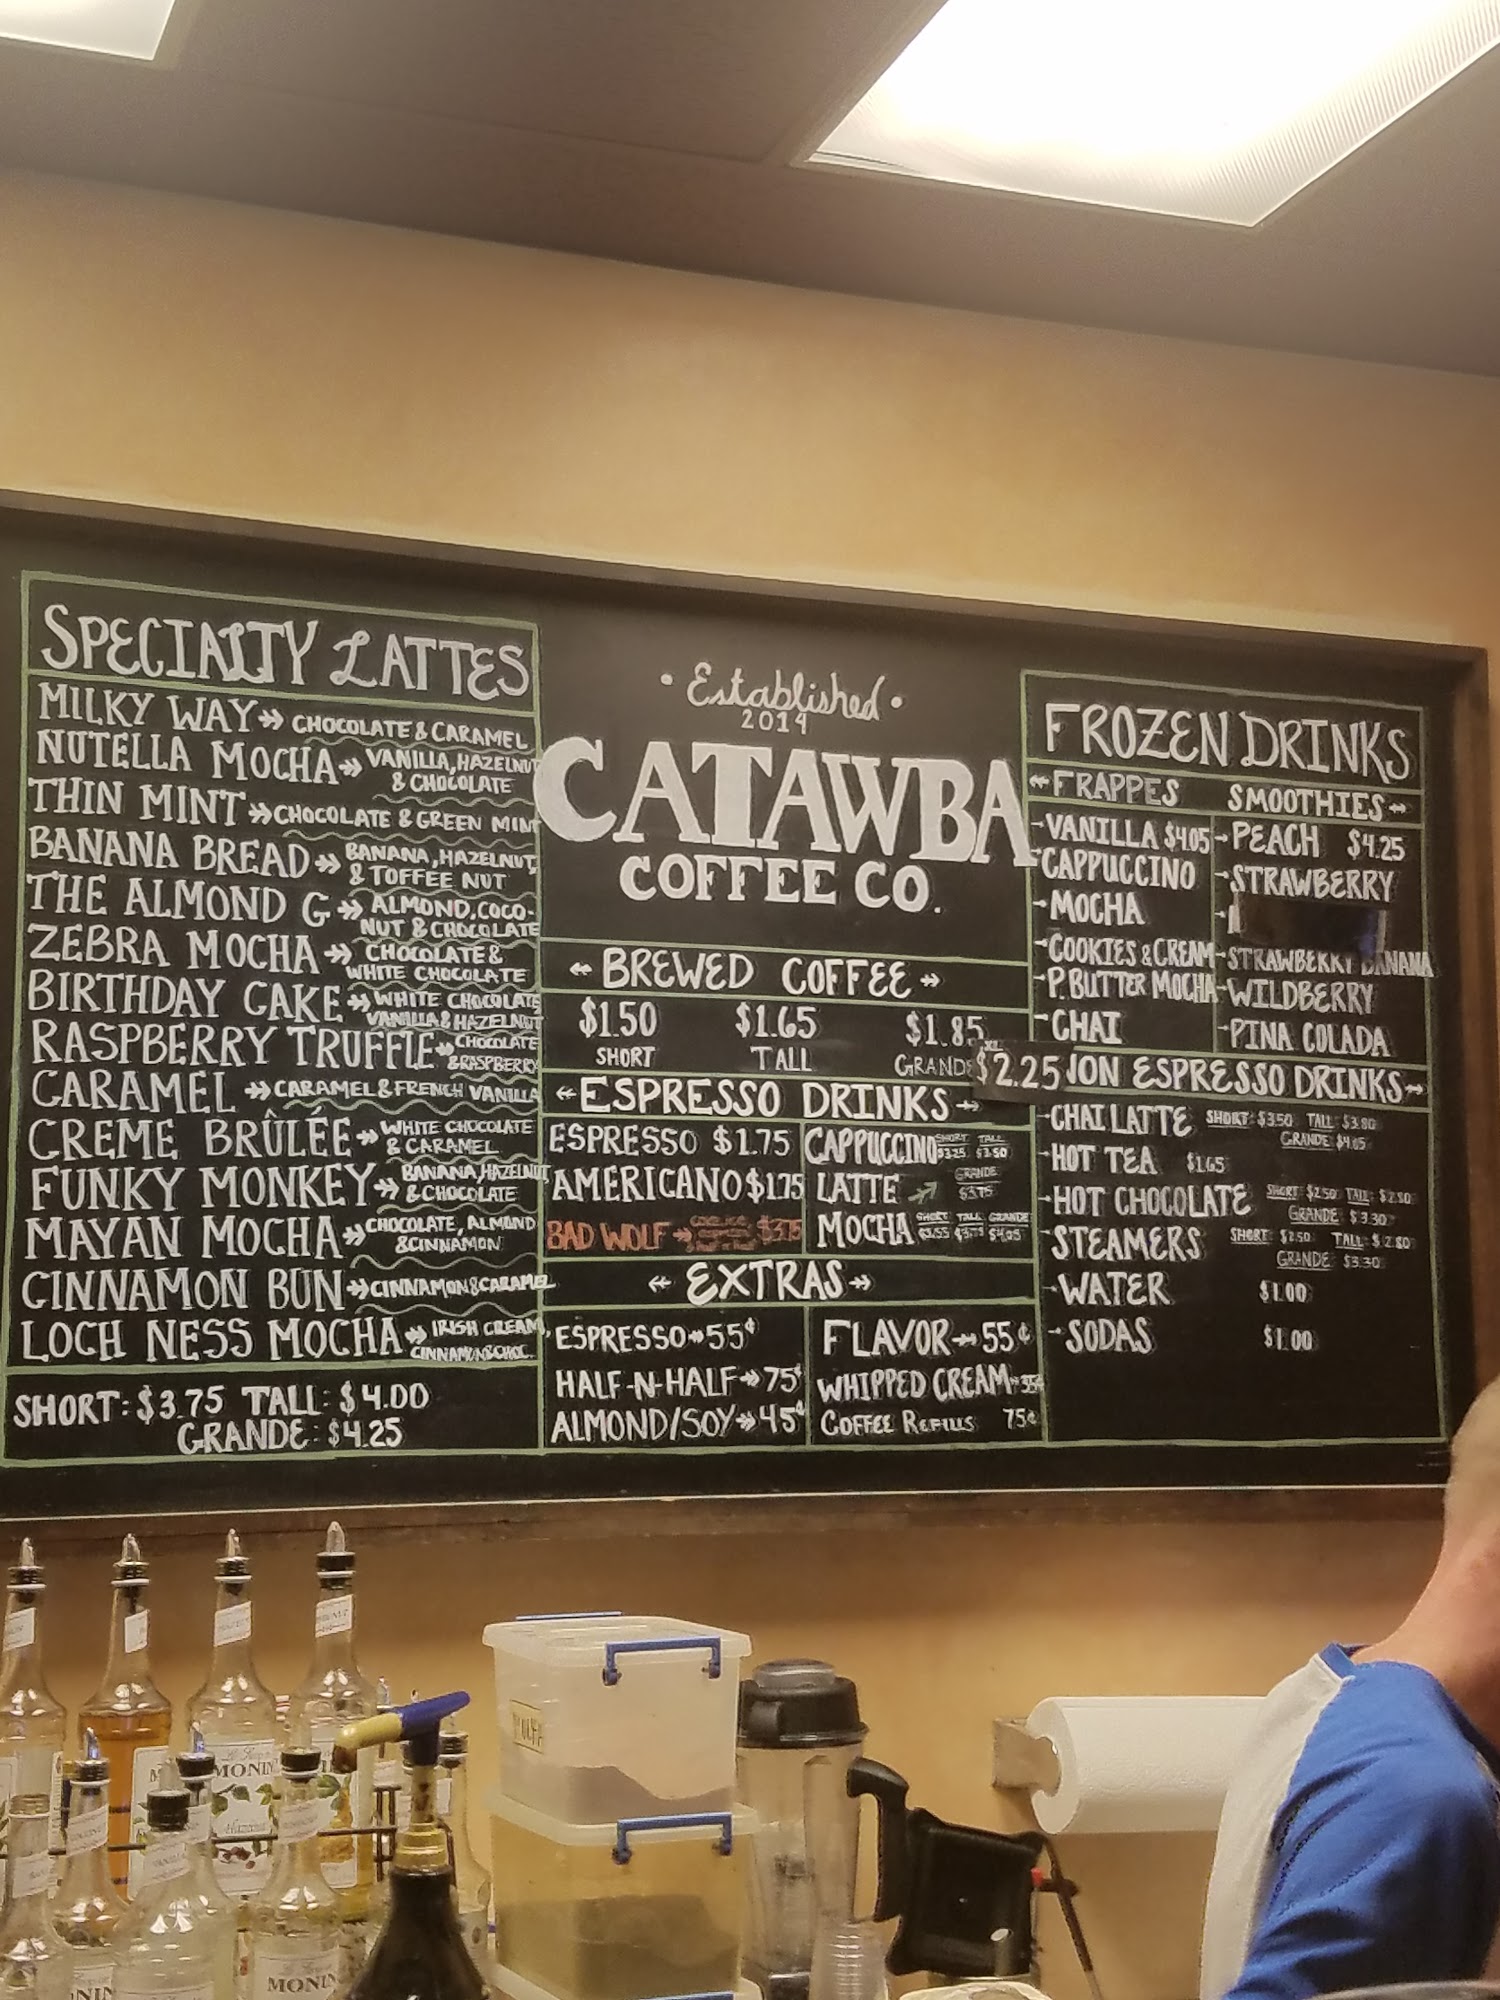 SPECIALTY LATTES
MILKY WAY →» CHOCOLATE & CARAMEL
NUTELLA MOCHA →» VANILLA, HAZELNUT
& CHOCOLATE
THIN MINT →» CHOCOLATE & GREEN MINT
BANANA BREAD →» BANANA, HAZELNUT,
& TOFFEE NUT
THE ALMOND G →» ALMOND, COCO-
NUT & CHOCOLATE
ZEBRA MOCHA →» CHOCOLATE &
WHITE CHOCOLATE
BIRTHDAY CAKE →» WHITE CHOCOLATE
VANILLA & HAZELNUT
RASPBERRY TRUFFLE →» CHOCOLATE
& RASPBERRY
CARAMEL →» CARAMEL & FRENCH VANILLA
CREME BRÛLÉE →» WHITE CHOCOLATE
& CARAMEL
FUNKY MONKEY →» BANANA, HAZELNUT
& CHOCOLATE
MAYAN MOCHA →» CHOCOLATE, ALMOND
& CINNAMON
CINNAMON BUN →» CINNAMON & CARAMEL
LOCH NESS MOCHA →» IRISH CREAM,
CINNAMON & CHOC.
SHORT: $3.75 TALL: $4.00
GRANDE: $4.25
• Established •
2014
CATAWBA
COFFEE CO.
BREWED COFFEE
$1.50 $1.65 $1.85
SHORT TALL GRANDE
$2.25
ESPRESSO DRINKS
ESPRESSO $1.75
AMERICANO $1.75
BAD WOLF → $3.75
CAPPUCCINO SHORT $3.25 TALL $3.50
LATTE GRANDE $3.75
MOCHA SHORT $3.55 TALL $3.75 GRANDE $4.05
EXTRAS
ESPRESSO → 55¢
HALF-N-HALF → 75¢
ALMOND/SOY → 45¢
FLAVOR → 55¢
WHIPPED CREAM → 35¢
COFFEE REFILLS 75¢
FROZEN DRINKS
FRAPPES SMOOTHIES
- VANILLA $4.05
- CAPPUCCINO
- MOCHA
- COOKIES & CREAM
- P. BUTTER MOCHA
- CHAI
- PEACH $4.25
- STRAWBERRY
- STRAWBERRY BANANA
- WILDBERRY
- PINA COLADA
NON ESPRESSO DRINKS
- CHAI LATTE SHORT: $3.50 TALL: $3.80
GRANDE $4.05
- HOT TEA $1.65
- HOT CHOCOLATE SHORT: $2.50 TALL: $2.80
GRANDE $3.30
- STEAMERS SHORT: $2.50 TALL: $2.80
GRANDE: $3.30
- WATER $1.00
- SODAS $1.00
MONIN
Hazelnut
MONIN